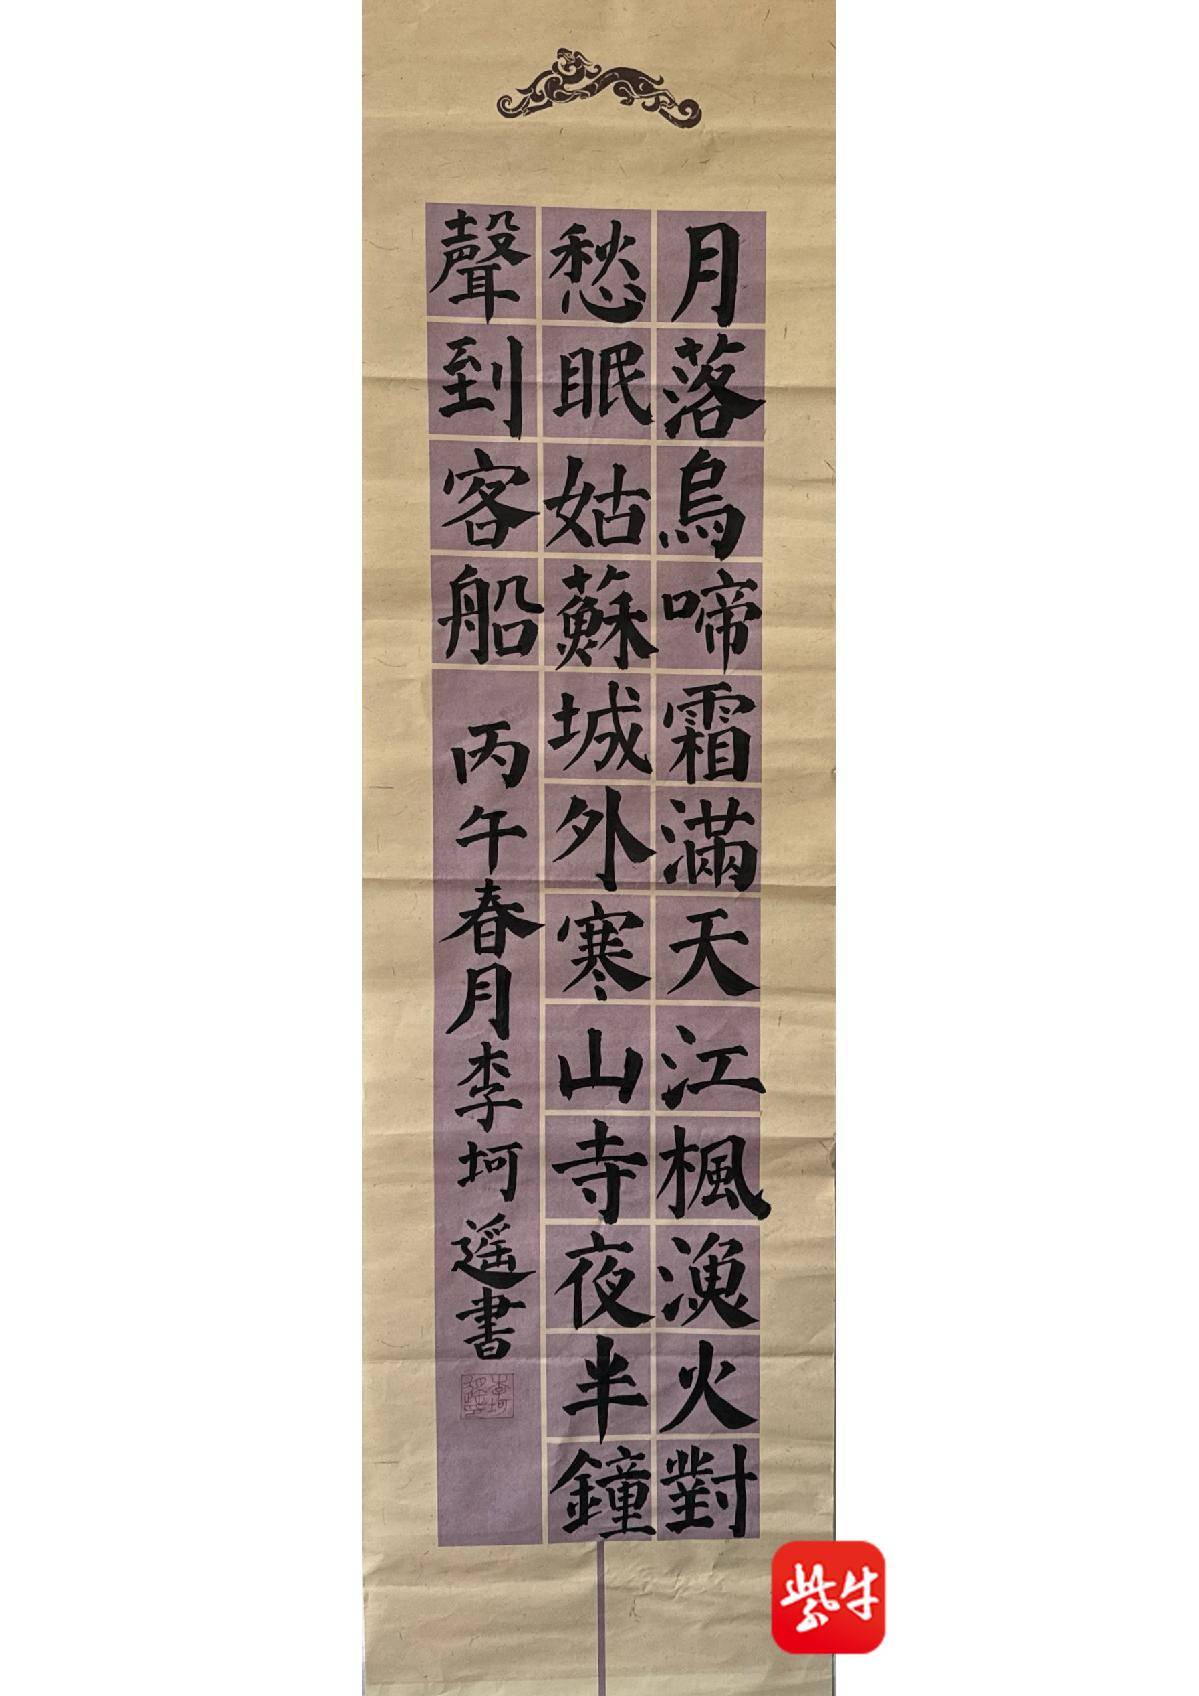 月落烏啼霜滿天江楓漁火對
愁眠姑蘇城外寒山寺夜半鐘
聲到客船
丙午春月李坷遥書
紫牛